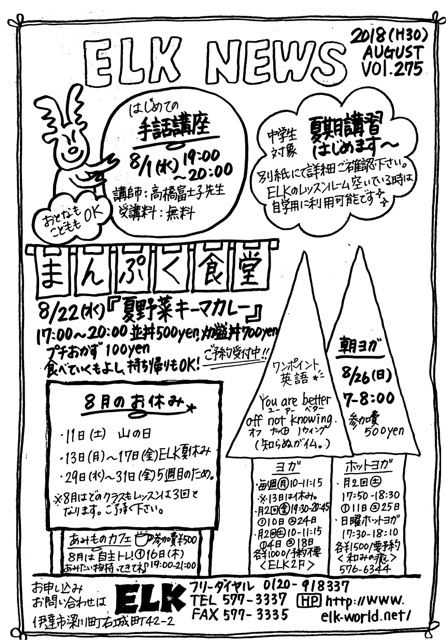 ELK NEWS
2018(H30)
AUGUST
VOL.275
はじめての
手話講座
8/1(水) 19:00
~20:00
講師:高橋富士子先生
受講料:無料
おとなも
こどもも OK
中学生
対象
夏期講習
はじめます~
別紙にて詳細ご確認下さい。
ELKのレッスンルーム空いている時は
自学用に利用可能です
まんぷく食堂
8/22(水)『夏野菜キーマカレー』
17:00~20:00 並丼500yen メガ盛丼700yen
プチおかず 100yen
食べていくもよし、持ち帰りもOK!
ご予約受付中!!
8月のお休み
・11日(土) 山の日
・13日(月)~17日(金)ELK夏休み
・29日(水)~31日(金)5週目のため。
※8月はどのクラスもレッスンは3回と
なります。ご了承下さい。
あみものカフェ 参加費¥500
8月は自主トレ!16日(木)
あみたい物持ってきてね 19:00-21:00
ワンポイント
英語
You are better
ユー アー ベター
off not knowing.
オフ ナット ノウィング
(知らぬが仏。)
朝ヨガ
8/26(日)
7-8:00
参加費
500yen
ヨガ
・毎週(月)10-11:15
・※13日は休み。
・月2(金)19:30-20:45
①10日②24日
・月2(土)10-11:15
①4日②18日
各¥1000/予約不要
<ELK2F>
ホットヨガ
・月2(土)
17:50-18:30
①11日②25日
・日曜ホットヨガ
17:30-18:10
各¥1500/要予約
<和みの癒>
576-6344
お申し込み
お問い合わせは
ELK
フリーダイヤル 0120-918337
TEL 577-3337
FAX 577-3335
HP http://www.
elk-world.net/
伊達市梁川町右城町42-2